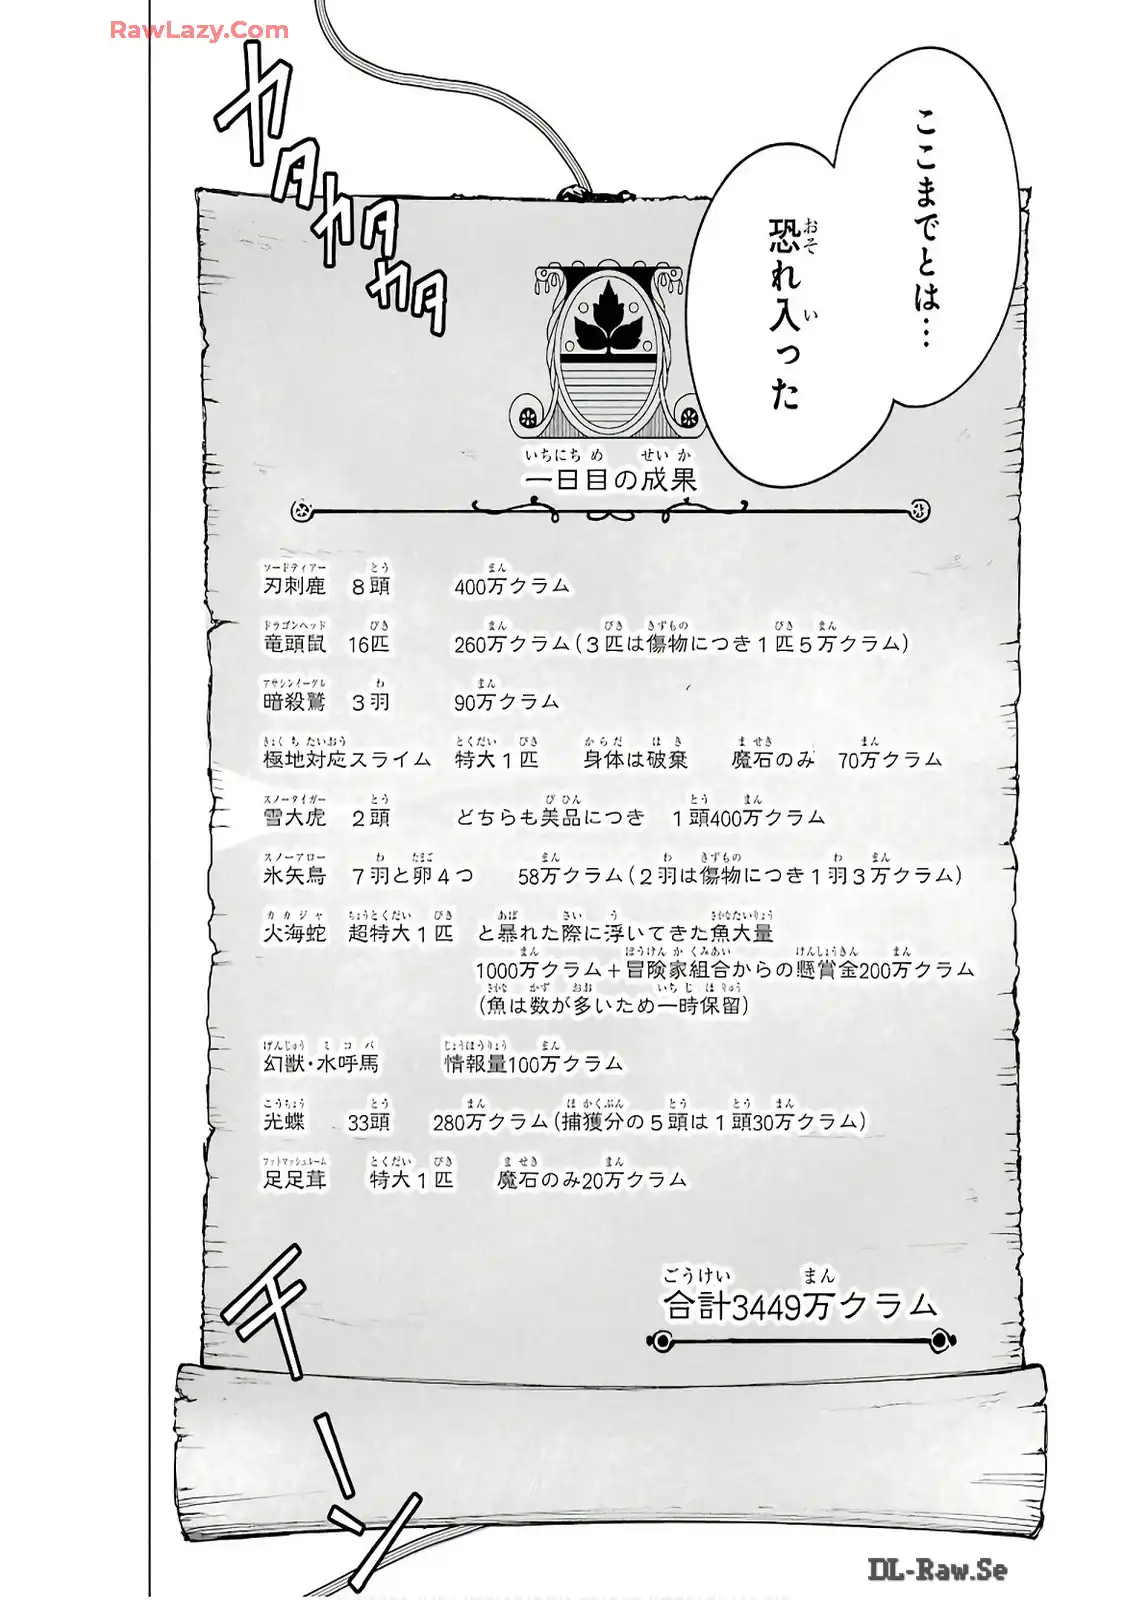 RawLazy.Com
ここまでとは…
恐れ入った
カタカタカタ
一日目の成果
刃刺鹿 8頭 400万クラム
竜頭鼠 16匹 260万クラム(3匹は傷物につき1匹5万クラム)
暗殺鷲 3羽 90万クラム
極地対応スライム 特大1匹 身体は破棄 魔石のみ 70万クラム
雪大虎 2頭 どちらも美品につき 1頭400万クラム
氷矢鳥 7羽と卵4つ 58万クラム(2羽は傷物につき1羽3万クラム)
火海蛇 超特大1匹 と暴れた際に浮いてきた魚大量
1000万クラム+冒険家組合からの懸賞金200万クラム
(魚は数が多いため一時保留)
幻獣・水呼馬 情報量100万クラム
光蝶 33頭 280万クラム(捕獲分の5頭は1頭30万クラム)
足足茸 特大1匹 魔石のみ20万クラム
合計3449万クラム
チーン
DL-Raw.Se